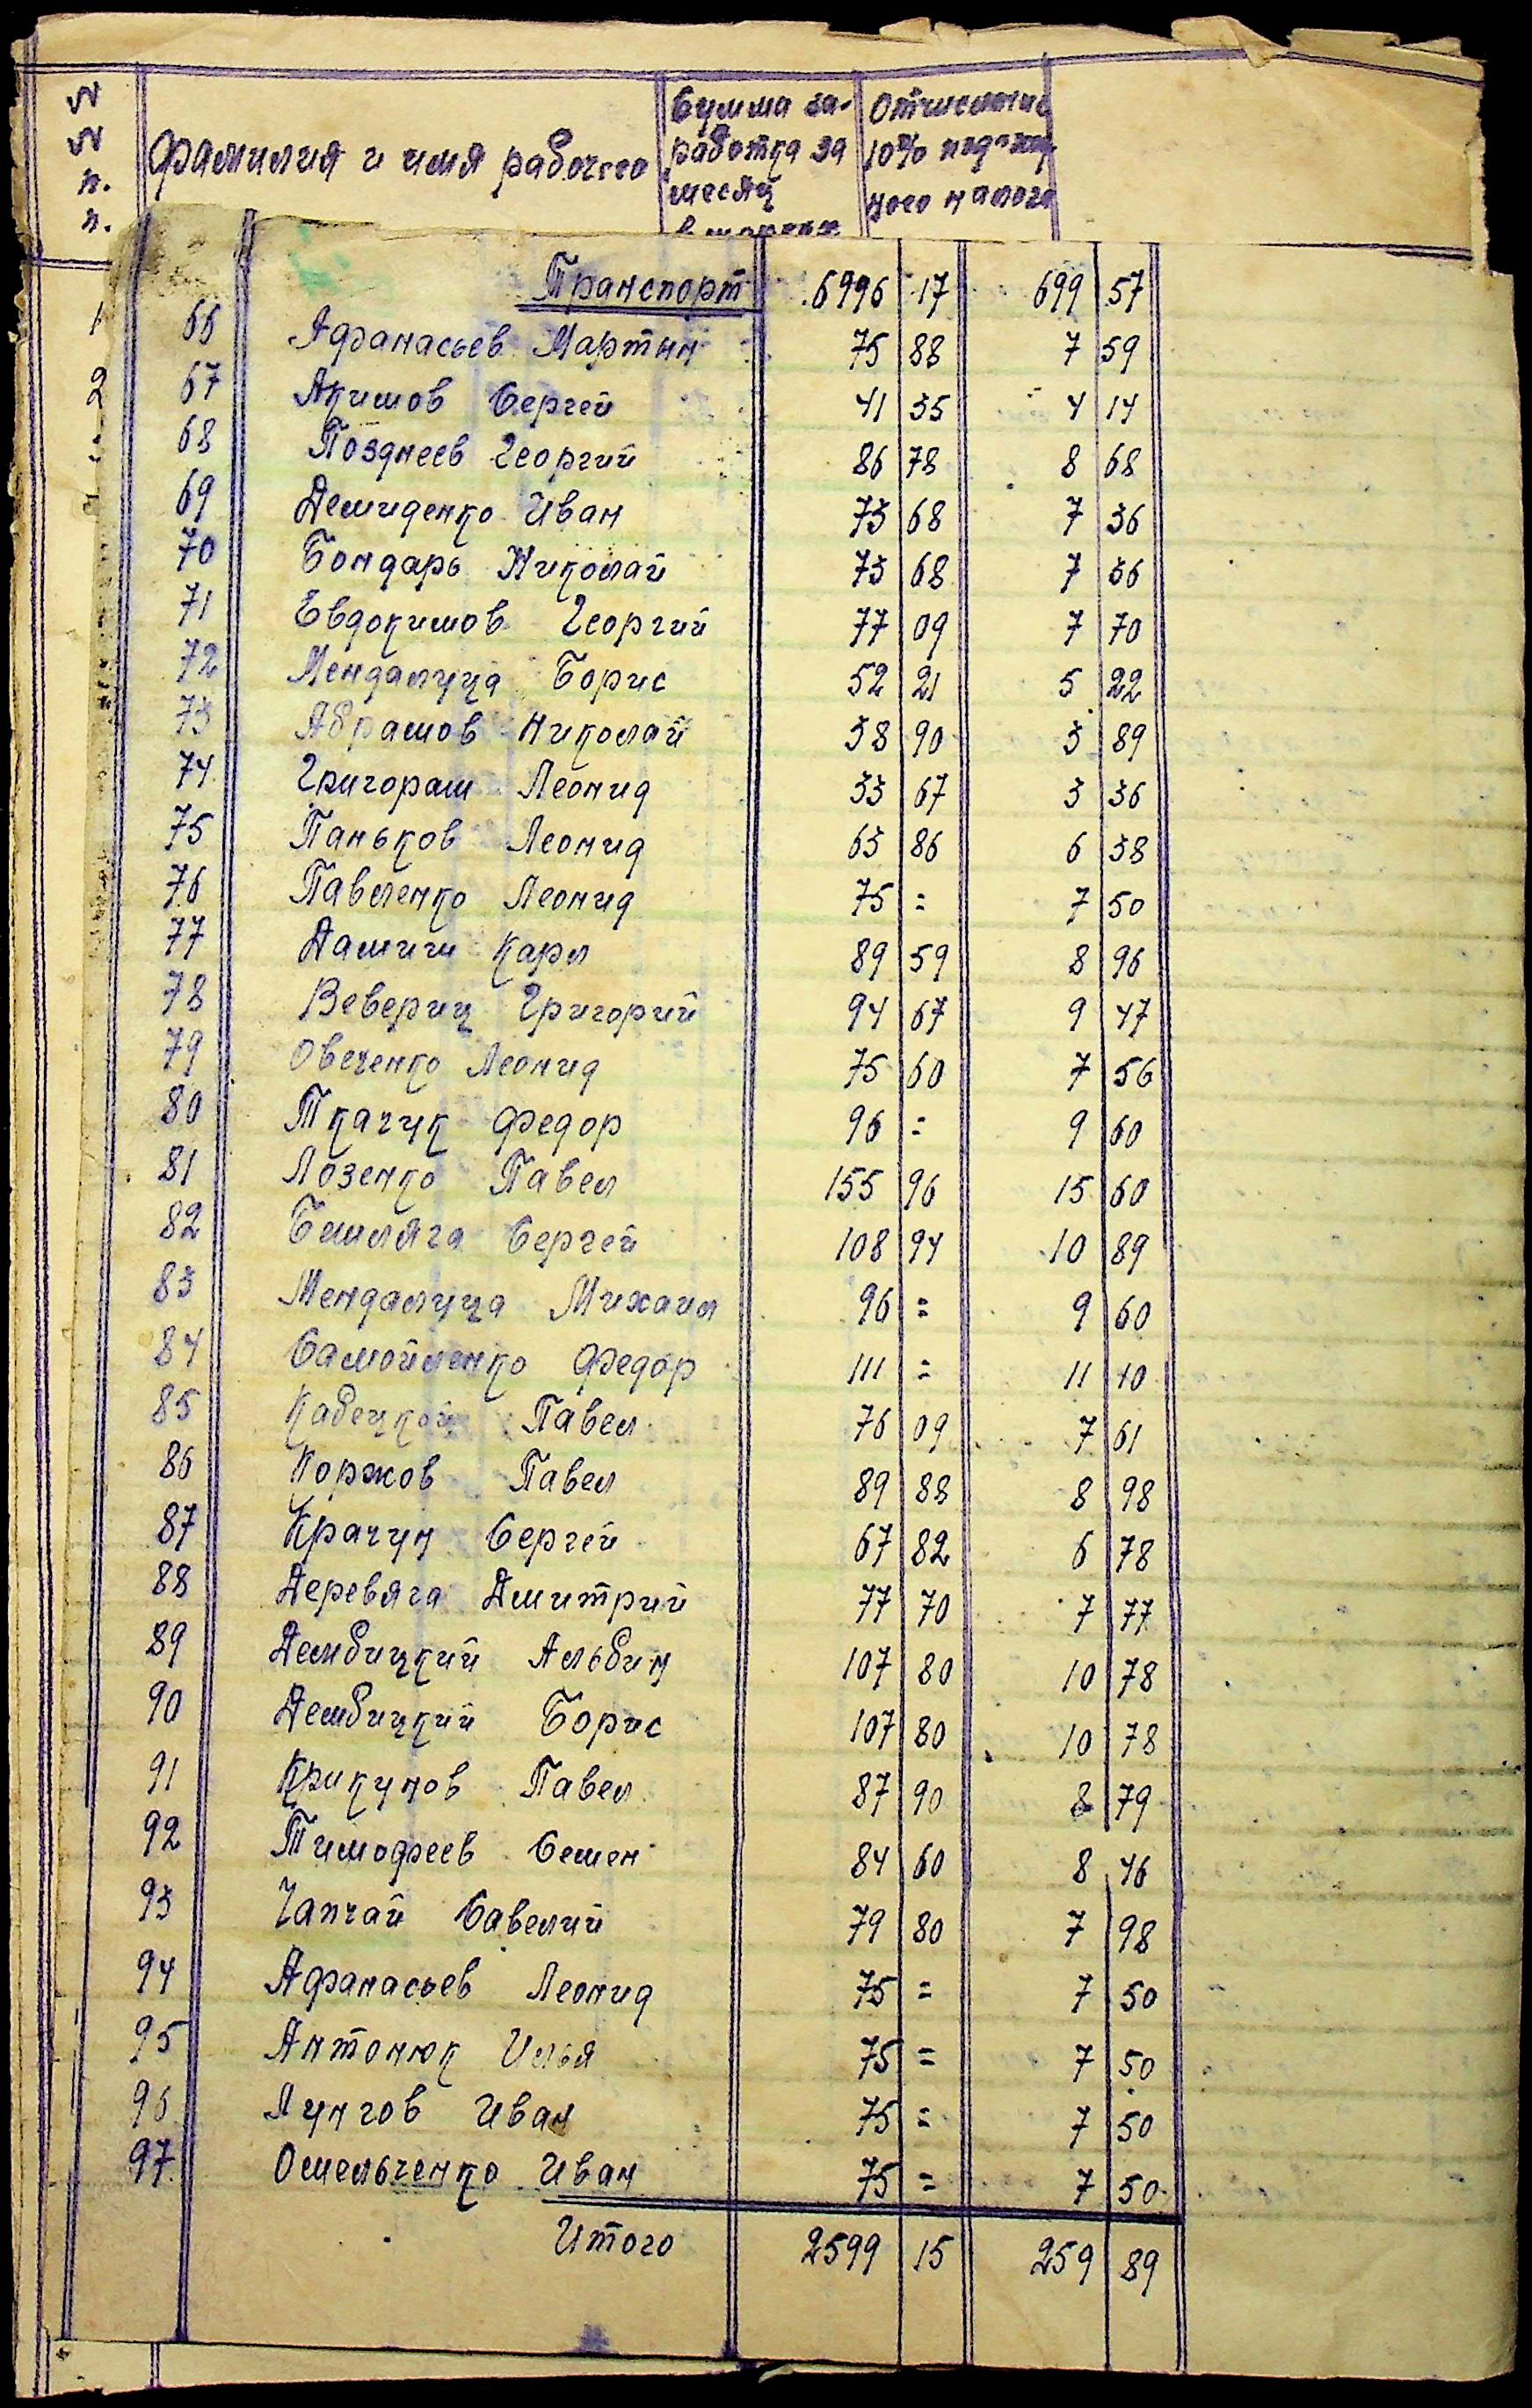 № № п. п.
Фамилия и имя рабочего
Сумма за-
работка за
месяц
Отчисления
10% подоход
ного налога
Транспорт 6996 17 699 57
1 66 Афанасьев Мартын 75 88 7 59
2 67 Акимов Сергей 41 35 4 14
68 Позднеев Георгий 86 78 8 68
69 Демиденко Иван 73 68 7 36
70 Бондарь Николай 73 68 7 36
71 Евдокимов Георгий 77 09 7 70
72 Мендалуца Борис 52 21 5 22
73 Абрамов Николай 38 90 3 89
74 Григораш Леонид 33 67 3 36
75 Паньков Леонид 63 86 6 38
76 Павленко Леонид 75 = 7 50
77 Дамиш Карл 89 59 8 96
78 Вевериц Григорий 94 67 9 47
79 Овеченко Леонид 75 60 7 56
80 Ткачук Федор 96 = 9 60
81 Лозенко Павел 155 96 15 60
82 Бешляга Сергей 108 94 10 89
83 Мендалуца Михаил 96 = 9 60
84 Самойленко Федор 111 = 11 10
85 Кабецкой Павел 76 09 7 61
86 Коржов Павел 89 88 8 98
87 Крачун Сергей 67 82 6 78
88 Деревяга Дмитрий 77 70 7 77
89 Дембицкий Альбин 107 80 10 78
90 Дембицкий Борис 107 80 10 78
91 Крикунов Павел 87 90 8 79
92 Тимофеев Семен 84 60 8 46
93 Чапчай Савелий 79 80 7 98
94 Афанасьев Леонид 75 = 7 50
95 Антонюк Илья 75 = 7 50
96 Лунгов Иван 75 = 7 50
97 Омельченко Иван 75 = 7 50
Итого 2599 15 259 89